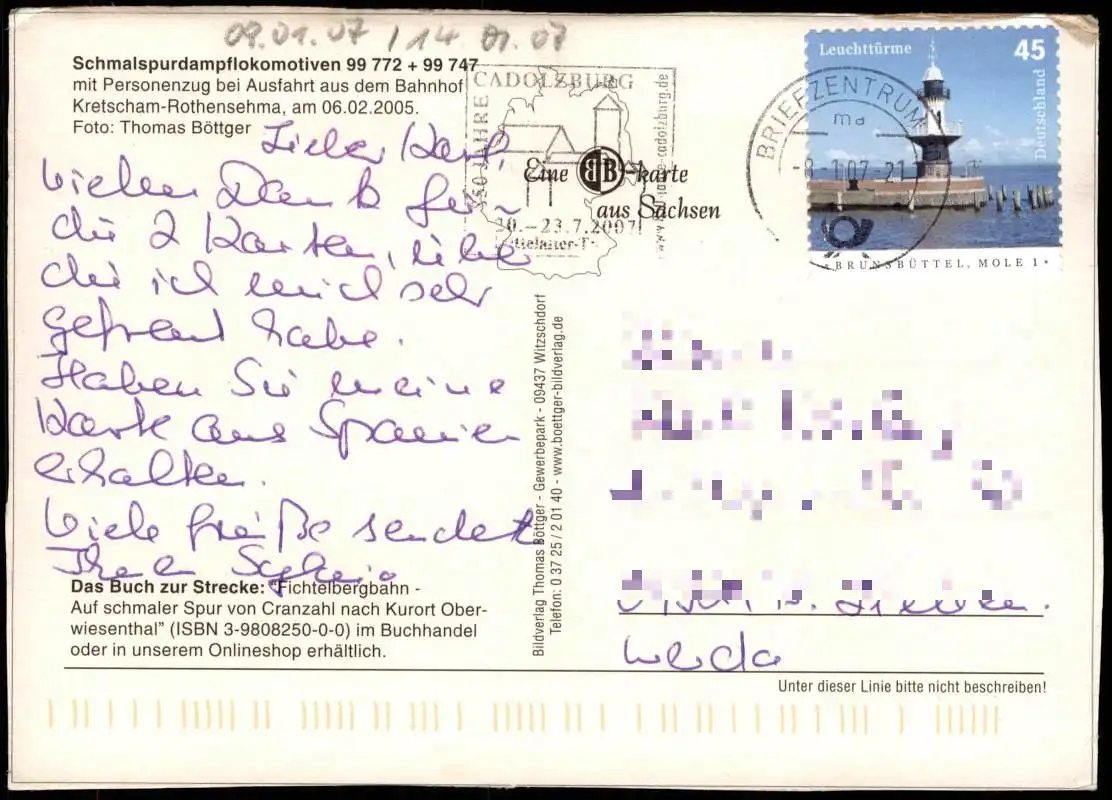 09.01.07 / 14.01.07
Schmalspurdampflokomotiven 99 772 + 99 747
mit Personenzug bei Ausfahrt aus dem Bahnhof
Kretscham-Rothensehma, am 06.02.2005.
Foto: Thomas Böttger
CADOLZBURG
JAHRE
-23.7.2007
Eine BB-karte
aus Sachsen
BRIEFZENTRUM
ma
-8.1.07-21
Leuchttürme
45
Deutschland
BRUNSBÜTTEL, MOLE 1
Lieber
vielen Dank für
die 2 Karten, über
die ich mich sehr
gefreut habe.
Haben Sie meine
Karte aus Spanien
erhalten.
Viele Grüße sendet
Ihnen
Das Buch zur Strecke: "Fichtelbergbahn -
Auf schmaler Spur von Cranzahl nach Kurort Ober-
wiesenthal" (ISBN 3-9808250-0-0) im Buchhandel
oder in unserem Onlineshop erhältlich.
Bildverlag Thomas Böttger - Gewerbepark - 09437 Witzschdorf
Telefon: 0 37 25 / 2 01 40 - www.boettger-bildverlag.de
Werda
Unter dieser Linie bitte nicht beschreiben!